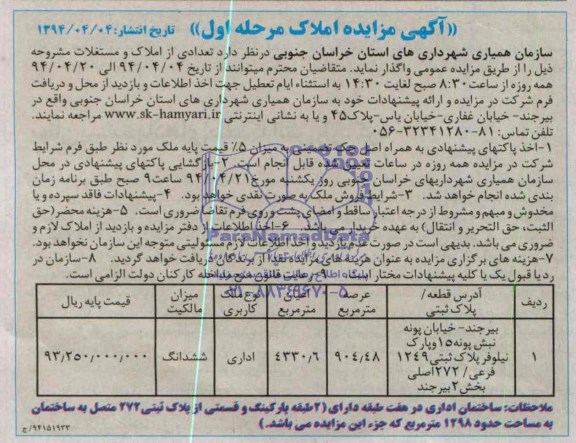 «آگهی مزایده املاک مرحله اول» تاریخ انتشار: ۱۳۹۴/۰۴/۰۴
سازمان همیاری شهرداری های استان خراسان جنوبی درنظر دارد تعدادی از املاک و مستغلات مشروحه
ذیل را از طریق مزایده عمومی واگذار نماید. متقاضیان محترم میتوانند از تاریخ ۹۴/۰۴/۰۴ الی ۹۴/۰۴/۲۰
همه روزه از ساعت ۸:۳۰ صبح لغایت ۱۴:۳۰ به استثناء ایام تعطیل جهت اخذ اطلاعات و بازدید از محل و دریافت
فرم شرکت در مزایده و ارائه پیشنهادات خود به سازمان همیاری شهرداری های استان خراسان جنوبی واقع در
بیرجند- خیابان غفاری-خیابان یاس-پلاک۴۵ و یا به نشانی اینترنتی www.sk-hamyari.ir مراجعه نمایند.
تلفن تماس: ۸۱-۳۲۳۴۱۲۸۰-۰۵۶
۱-اخذ پاکتهای پیشنهادی به همراه اصل چک تضمینی به میزان ۵٪ قیمت پایه ملک مورد نظر طبق فرم شرایط
شرکت در مزایده همه روزه در ساعات تعیین شده قابل انجام است. ۲-بازگشایی پاکتهای پیشنهادی در محل
سازمان همیاری شهرداریهای خراسان جنوبی روز یکشنبه مورخ ۹۴/۰۴/۲۱ ساعت ۹ صبح طبق برنامه زمان
بندی شده انجام خواهد شد. ۳-شرایط فروش ملک به صورت نقدی خواهد بود. ۴-پیشنهادات فاقد سپرده و یا
مخدوش و مبهم و مشروط از درجه اعتبار ساقط و امضای پشت و روی فرم تقاضا ضروری است. ۵-هزینه محضر(حق
الثبت، حق التحریر و انتقال) به عهده خریدار می باشد. ۶-اخذ اطلاعات از دفتر مزایده و بازدید از املاک لازم و
ضروری می باشد. بدیهی است در صورت عدم بازدید و اخذ اطلاعات لازم مسئولیتی متوجه این سازمان نخواهد بود.
۷-هزینه های برگزاری مزایده به عنوان هزینه های مزایده نقدا از برندگان دریافت خواهد گردید. ۸-سازمان در
رد یا قبول یک یا کلیه پیشنهادات مختار است. ۹-رعایت قانون منع مداخله کارکنان دولت الزامی است.
ParsNamadData
۰۲۱-۸۸۳۴۹۶۷۰-۵
ردیف آدرس قطعه/ پلاک ثبتی عرصه مترمربع اعیان مترمربع نوع ملک کاربری میزان مالکیت قیمت پایه ریال
۱ بیرجند-خیابان پونه نبش پونه۱۵وپارک نیلوفر پلاک ثبتی۱۲۴۹ فرعی/۲۷۲اصلی بخش۲بیرجند ۹۰۴،۴۸ ۴۳۳۰،۶ اداری ششدانگ ۹۳/۲۵۰/۰۰۰/۰۰۰
ملاحظات: ساختمان اداری در هفت طبقه دارای (۲طبقه پارکینگ و قسمتی از پلاک ثبتی۲۷۲ متصل به ساختمان
به مساحت حدود ۱۲۹۸ مترمربع که جزء این مزایده می باشد.)
۹۴۱۵۱۹۳۳/ج